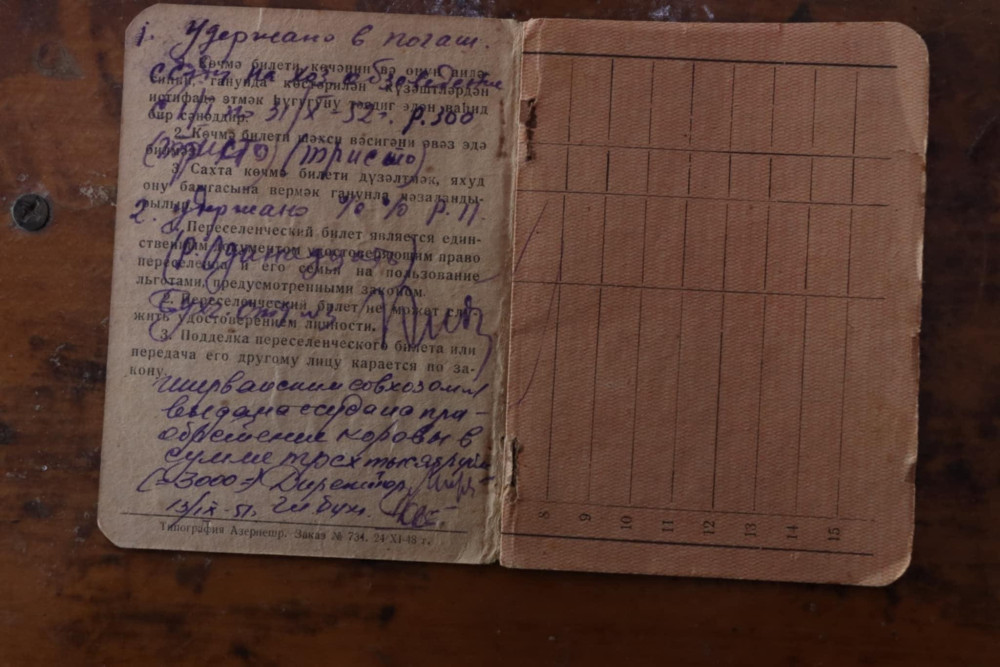 1. Удержано в погаш.
ссуды на хоз. обзаведение
1. Көчмә билети көчәнин вә онун аилә-
синин, ганунда көстәрилән күзәштләрдән
истифадә этмәк һүгугуну тәсдиг эдән
бир сәнәддир.
31/X-52г. р. 300
2. Көчмә билети шәхси вәсигәни әвәз эдә
(триста)
3. Сахта көчмә билети дүзәлтмәк, яхуд
ону башгасына вермәк ганунла чәзаланды-
рылыр.
2. Удержано % % р. 11.
1. Переселенческий билет является един-
ственным документом удостоверяющим право
переселенца и его семьи на пользование
льготами, предусмотренными законом.
(Р. Одинадцать)
2. Переселенческий билет не может слу-
жить удостоверением личности.
3. Подделка переселенческого билета или
передача его другому лицу карается по за-
кону.
Ширванским совхозом
выдана ссуда на при-
обретение коровы в
сумме трех тысяч рублей
(=3000=) Директор
13/IX-51г. Гл бух.
Типография Азернешр. Заказ № 734. 24-XI-48 г.
8
9
10
11
12
13
14
15